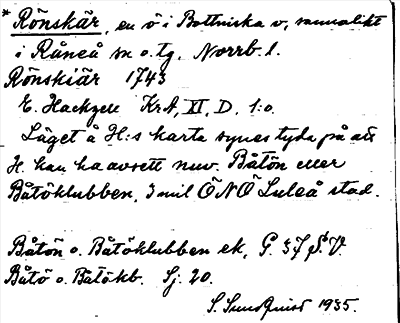 * Rönskär, en ö i Bottniska v, sannolikt
i Råneå sn o. tg. Norrb. l.
Rönskiär 1743
E. Hackzell KrA, XI, D, 1:o.
Läget å H:s karta synes tyda på att
H. kan ha avsett nuv. Båtön eller
Båtöklubben, 3 mil ÖNÖ Luleå stad.
Båtön o. Båtöklubben ek, G. 37 S.V.
Båtö o. Båtökb. Sj. 20.
S. Sundqvist 1935.